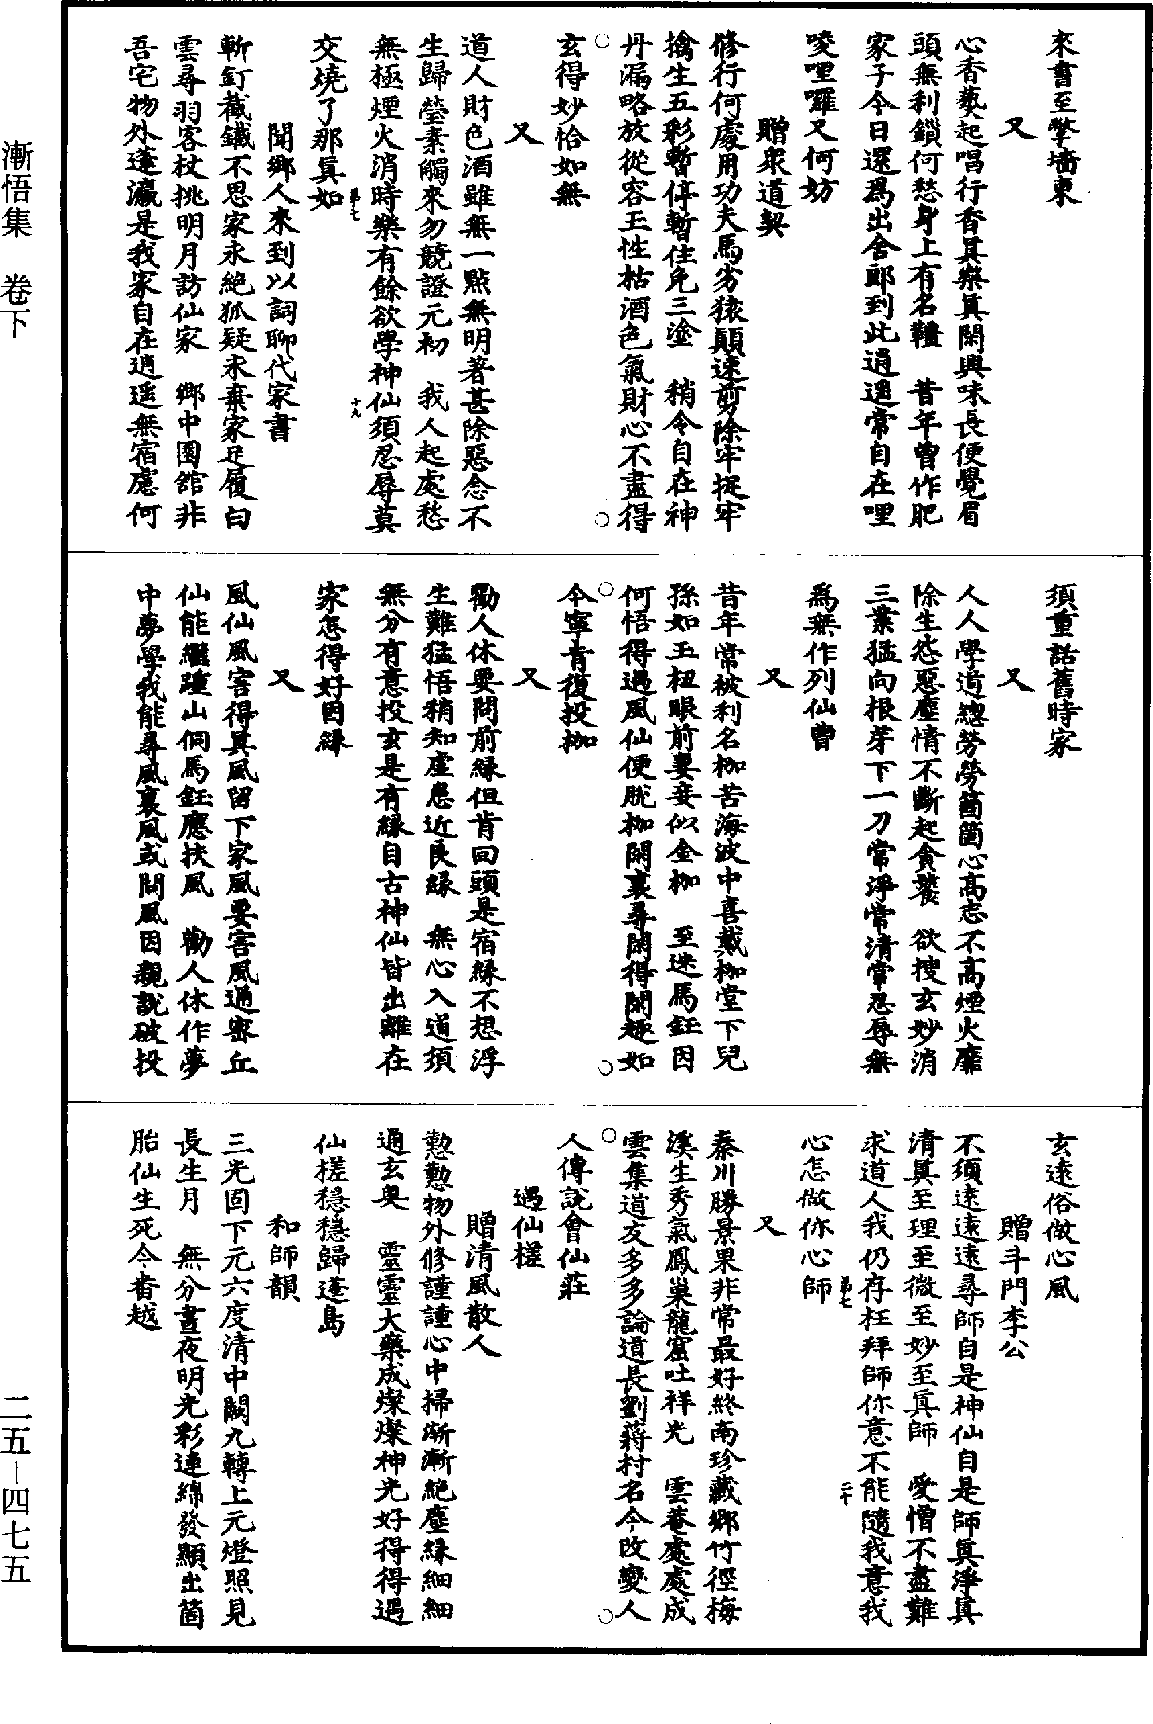 來書至擘墻東
又
心香蓺起唱行香眞樂眞閑興味長便覺眉
頭無利鎖何愁身上有名韁　昔年曾作肥
家子今日還爲出舍郎到此逍遥常自在哩
唆哩囉又何妨
贈衆道契
修行何處用功夫馬劣猿顚速剪除牢捉牢
擒生五彩暫停暫住免三塗　稍令自在神
丹漏略放從容玉性枯酒色氣財心不盡得
玄得妙恰如無
又
道人財色酒雖無一點無明著甚除惡念不
生歸瑩素觸來勿競證元初　我人起處愁
無極煙火消時樂有餘欲學神仙須忍辱莫
交燒了那眞如
第七
十九
聞鄉人來到以詞聊代家書
斬釘截鐵不思家永絕狐疑永棄家足履白
雲尋羽客杖挑明月訪仙家　鄉中園舘非
吾宅物外蓬瀛是我家自在逍遥無宿慮何
須重話舊時家
又
人人學道總勞勞箇箇心高志不高煙火靡
除生怨惡塵情不斷起貪饕　欲搜玄妙消
三業猛向根芽下一刀常淨常清常忍辱無
爲無作列仙曹
又
昔年常被利名枷苦海波中喜戴枷堂下兒
孫如玉杻眼前妻妾似金枷　至迷馬鈺因
何悟得遇風仙便脫枷閑裏尋閑得閑趣如
今寧肯復投枷
又
勸人休要問前緣但肯回頭是宿緣不想浮
生難猛悟稍知虛患近良緣　無心入道須
無分有意投玄是有緣自古神仙皆出離在
家怎得好因緣
又
風仙風害得眞風留下家風要害風通密丘
仙能繼踵山侗馬鈺應扶風　勸人休作夢
中夢學我能尋風裏風或問風因親說破投
玄遠俗做心風
贈斗門李公
不須遠遠遠尋師自是神仙自是師眞淨眞
清眞至理至微至妙至眞師　愛憎不盡難
求道人我仍存枉拜師你意不能隨我意我
心怎做你心師
第七
二十
又
秦川勝景果非常最好終南珍藏鄉竹徑梅
溪生秀氣鳳巢龍窟吐祥光　雲菴處處成
雲集道友多多論道長劉蔣村名今改變人
人傳說會仙莊
遇仙槎
贈清風散人
懃懃物外修謹謹心中掃漸漸絕塵緣細細
通玄奧　靈靈大藥成燦燦神光好得得遇
仙槎穩穩歸蓬島
和師韻
三光回下元六度清中闕九轉上元燈照見
長生月　無分晝夜明光彩連綿發顯出箇
胎仙生死今番越
漸悟集　卷下
二五—四七五